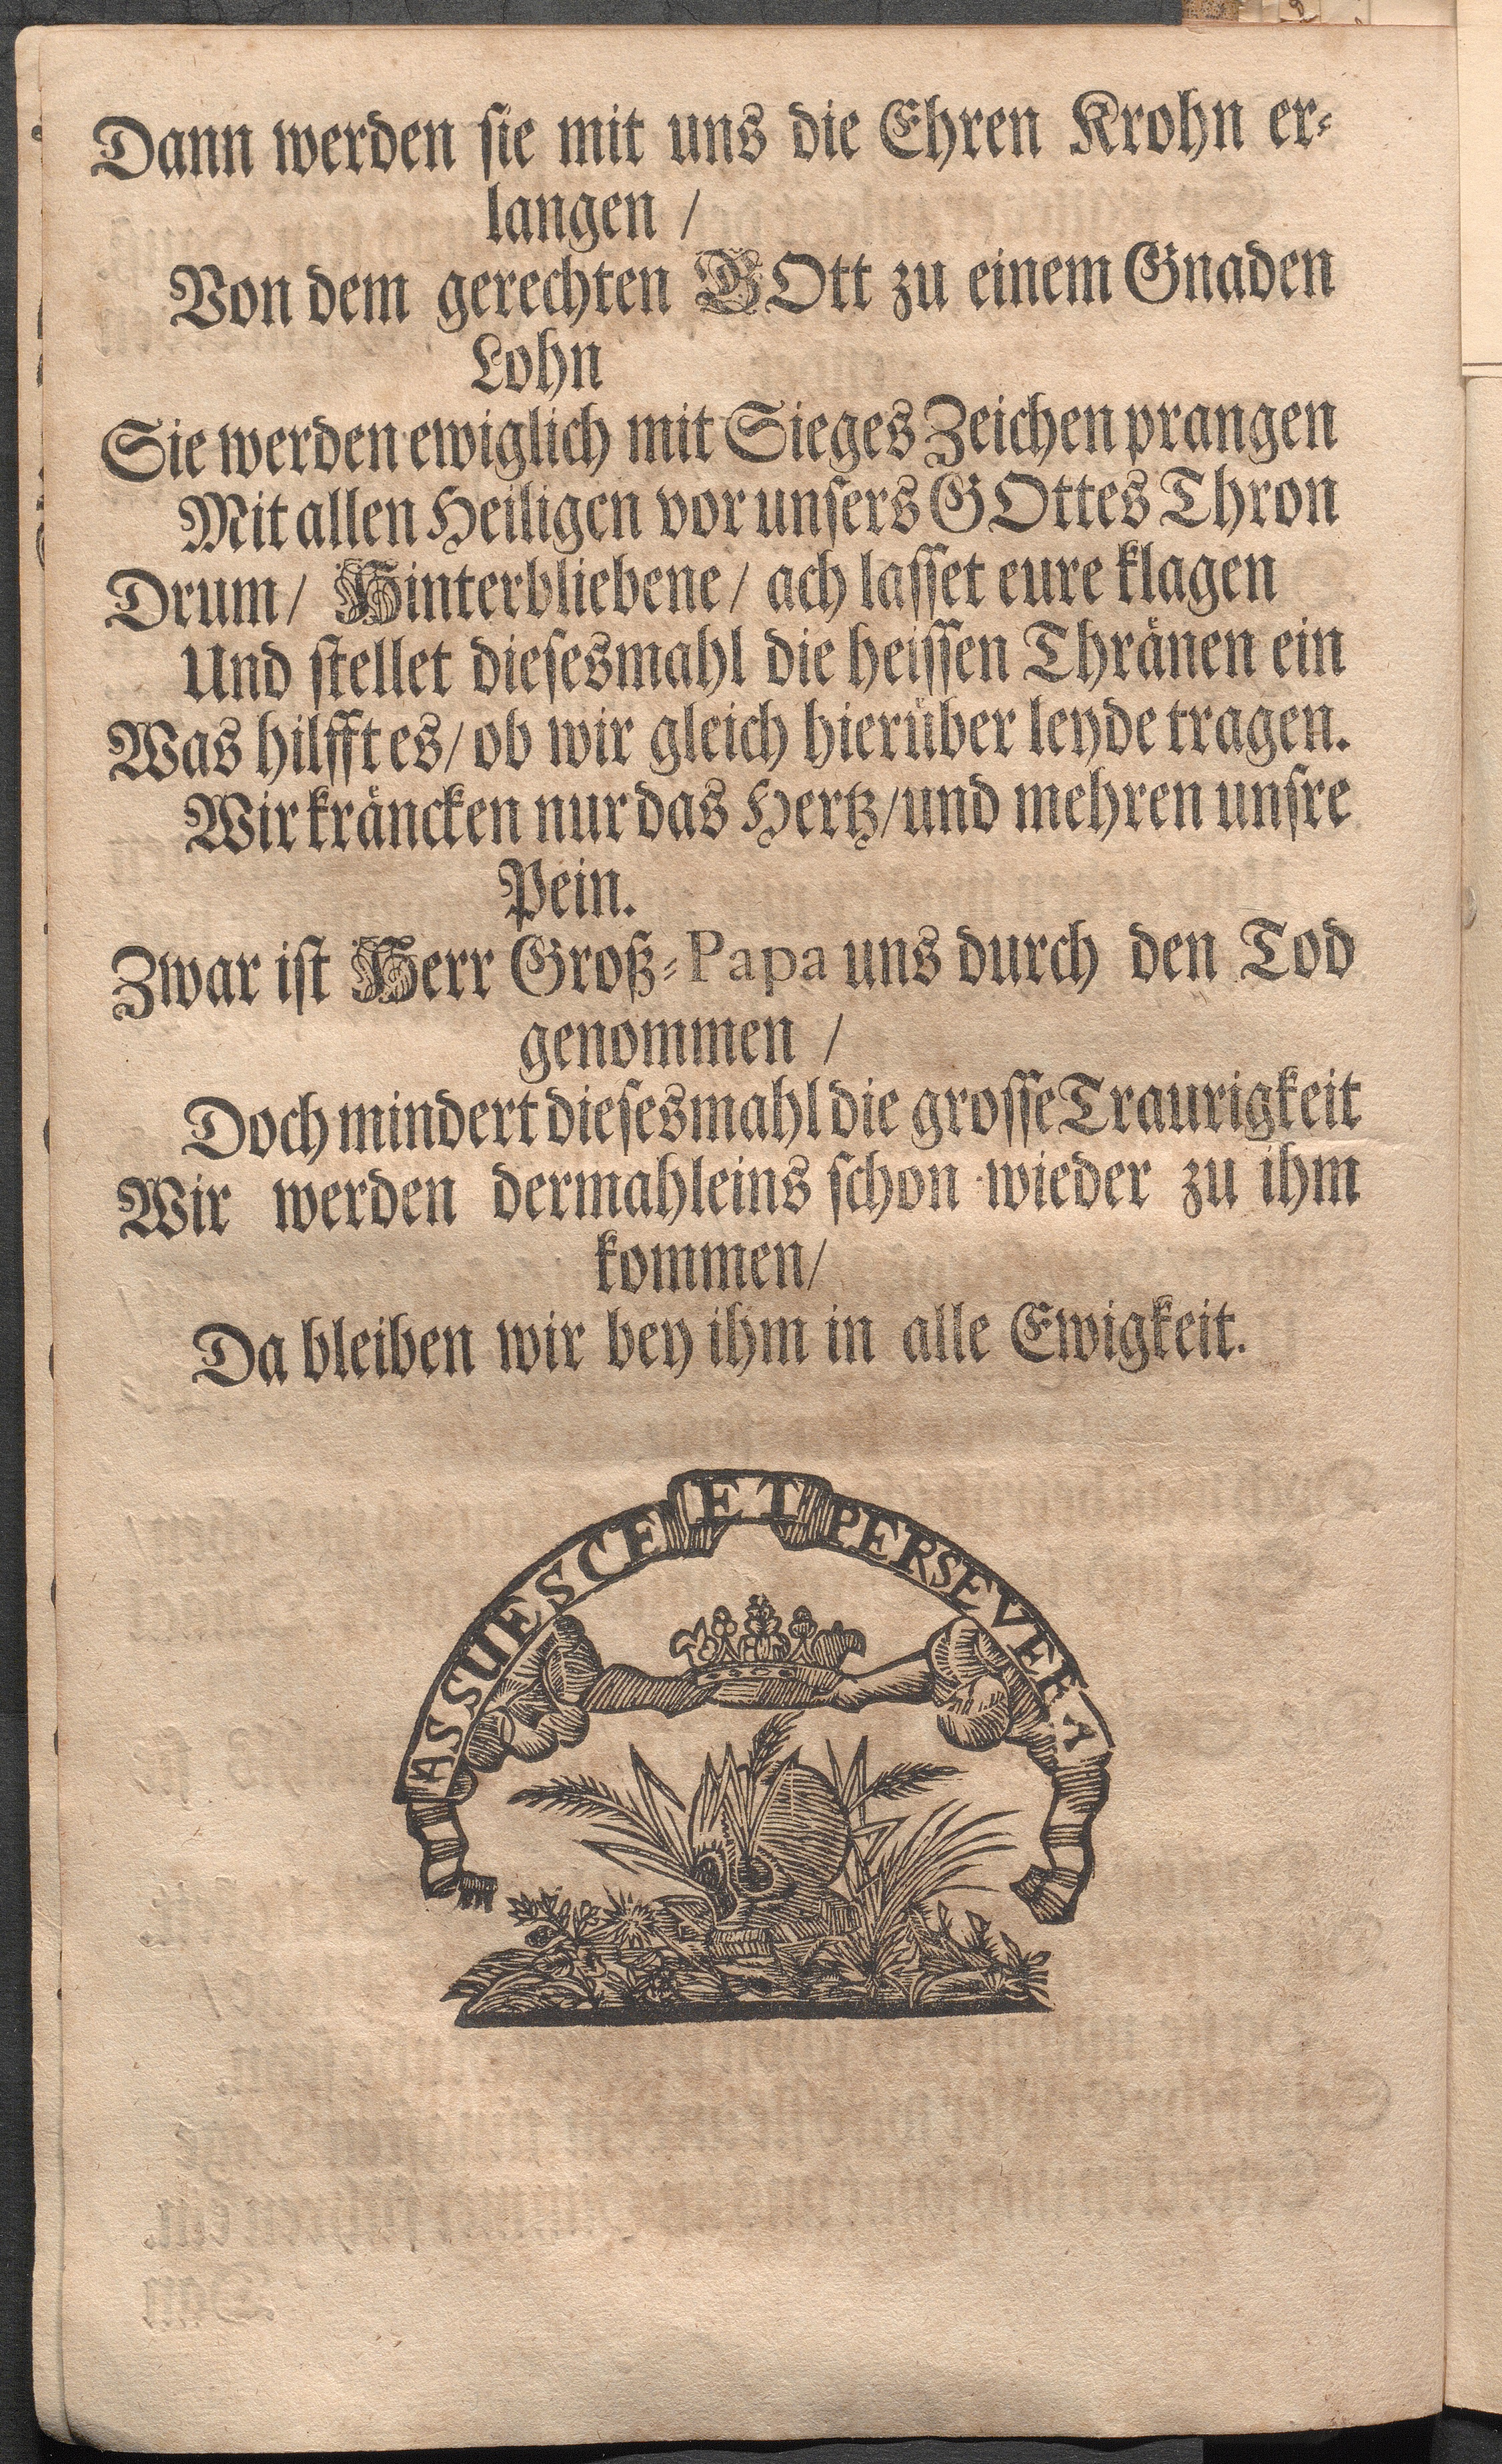 Dann werden sie mit uns die Ehren Krohn er-
langen /
Von dem gerechten GOtt zu einem Gnaden
Lohn
Sie werden ewiglich mit Sieges Zeichen prangen
Mit allen Heiligen vor unsers GOttes Thron
Drum / Hinterbliebene / ach lasset eure klagen
Und stellet diesesmahl die heissen Thränen ein
Was hilfft es / ob wir gleich hierüber leyde tragen.
Wir kräncken nur das Hertz / und mehren unsre
Pein.
Zwar ist Herr Groß-Papa uns durch den Tod
genommen /
Doch mindert diesesmahl die grosse Traurigkeit
Wir werden dermahleins schon wieder zu ihm
kommen /
Da bleiben wir bey ihm in alle Ewigkeit.
ASSUESCE ET PERSEVERA